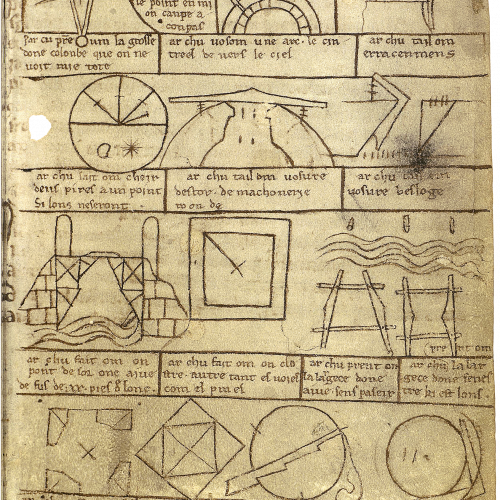 le point en mi
on canpe a
conpas
par cu prent om la grosse
done colonbe que on ne
voit mie tote
ar chu vosom une arc. le cin
treel de vers le ciel
ar chu tail om
erracemens
ar chu fait om cheir
deus pires a un point
si lons neseront
ar chu tail om vosure
destor. de machonerie
roonde
ar chu tail om
vosure besloge
ar chu fait om on
pont de sor one aiue
de fus de. xx. pies d lonc
ar chu fait om on clo
stre. autre tant es voies
com el prael
ar chu prent om
la largece done
aiue. sens paseir
prent om
ar chu la lar
gece done fenes
tre ki est lons